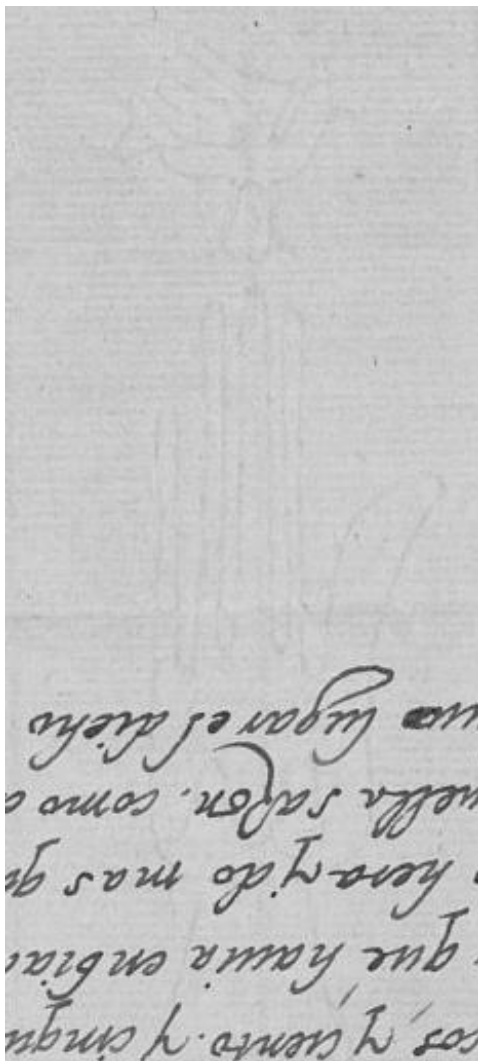 cos, y ciento. y cinqu
que, havia enbiad
hera ydo mas qu
uella sason. como a
lugar el dicho